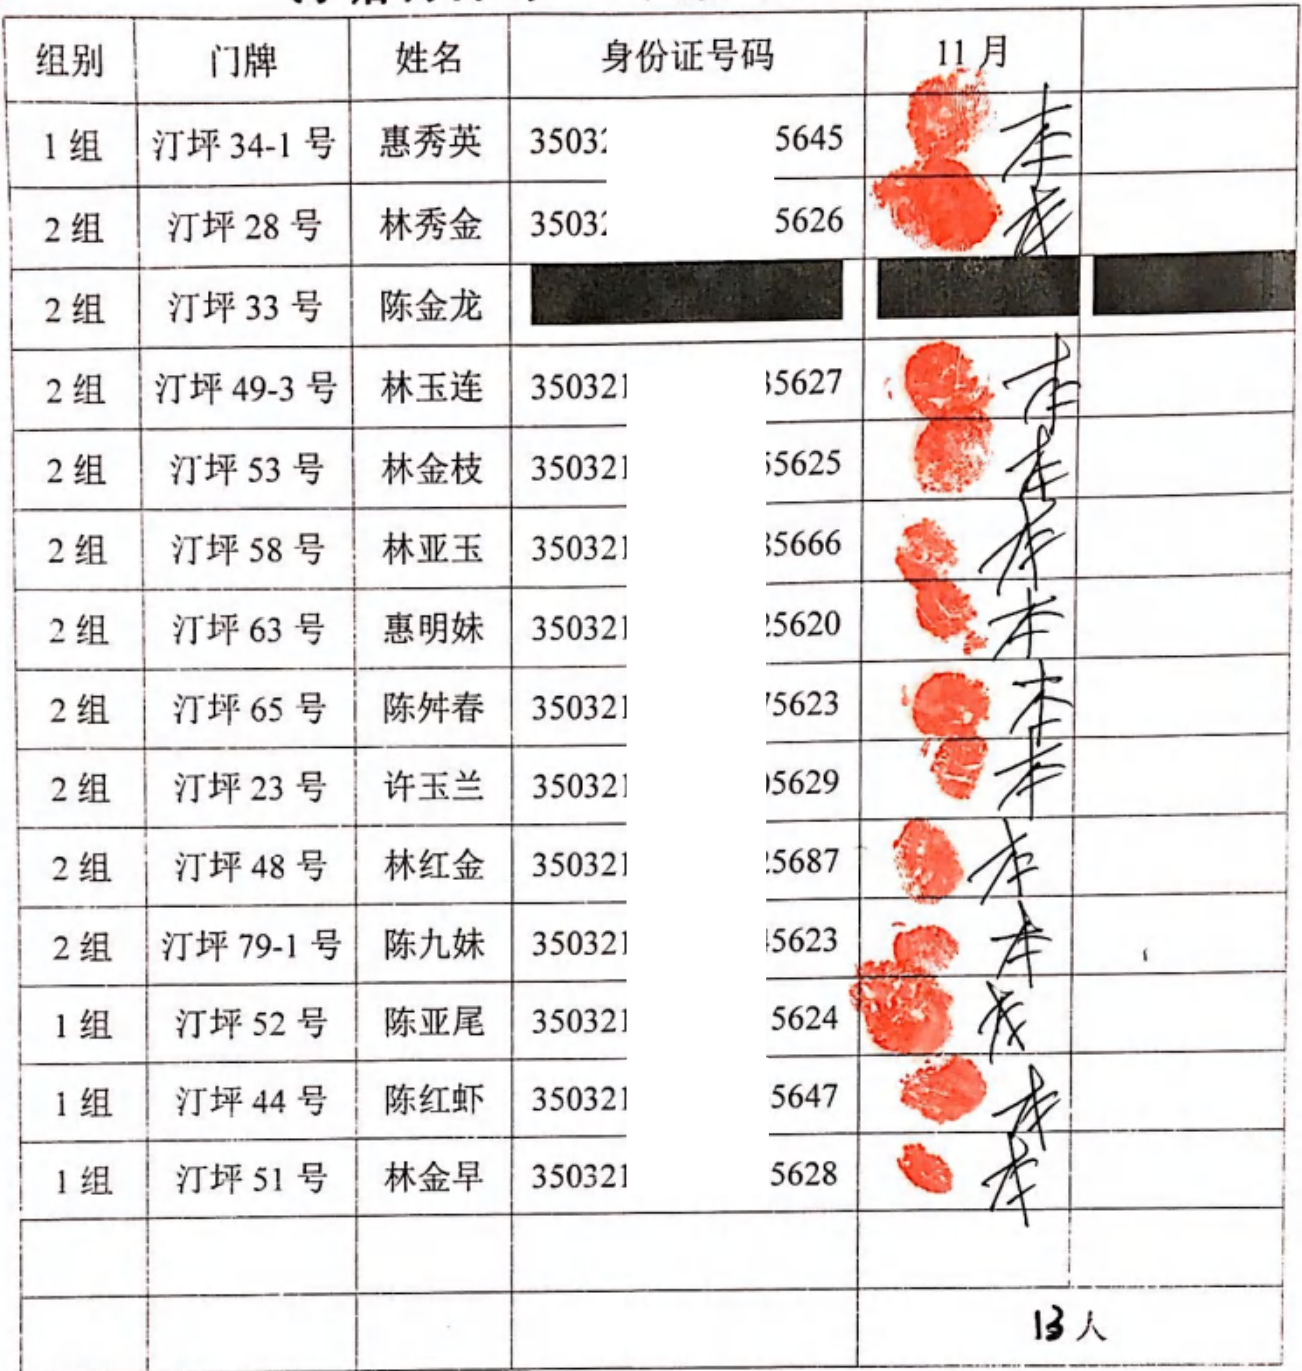 组别 门牌 姓名 身份证号码 11月
1组 汀坪34-1号 惠秀英 3503 5645 本
2组 汀坪28号 林秀金 3503 5626
2组 汀坪33号 陈金龙
2组 汀坪49-3号 林玉连 350321 5627 本
2组 汀坪53号 林金枝 350321 5625 本
2组 汀坪58号 林亚玉 350321 5666 本
2组 汀坪63号 惠明妹 350321 5620 本
2组 汀坪65号 陈舛春 350321 5623 本
2组 汀坪23号 许玉兰 350321 5629 本
2组 汀坪48号 林红金 350321 5687 本
2组 汀坪79-1号 陈九妹 350321 5623 本
1组 汀坪52号 陈亚尾 350321 5624
1组 汀坪44号 陈红虾 350321 5647 本
1组 汀坪51号 林金早 350321 5628 本
13人